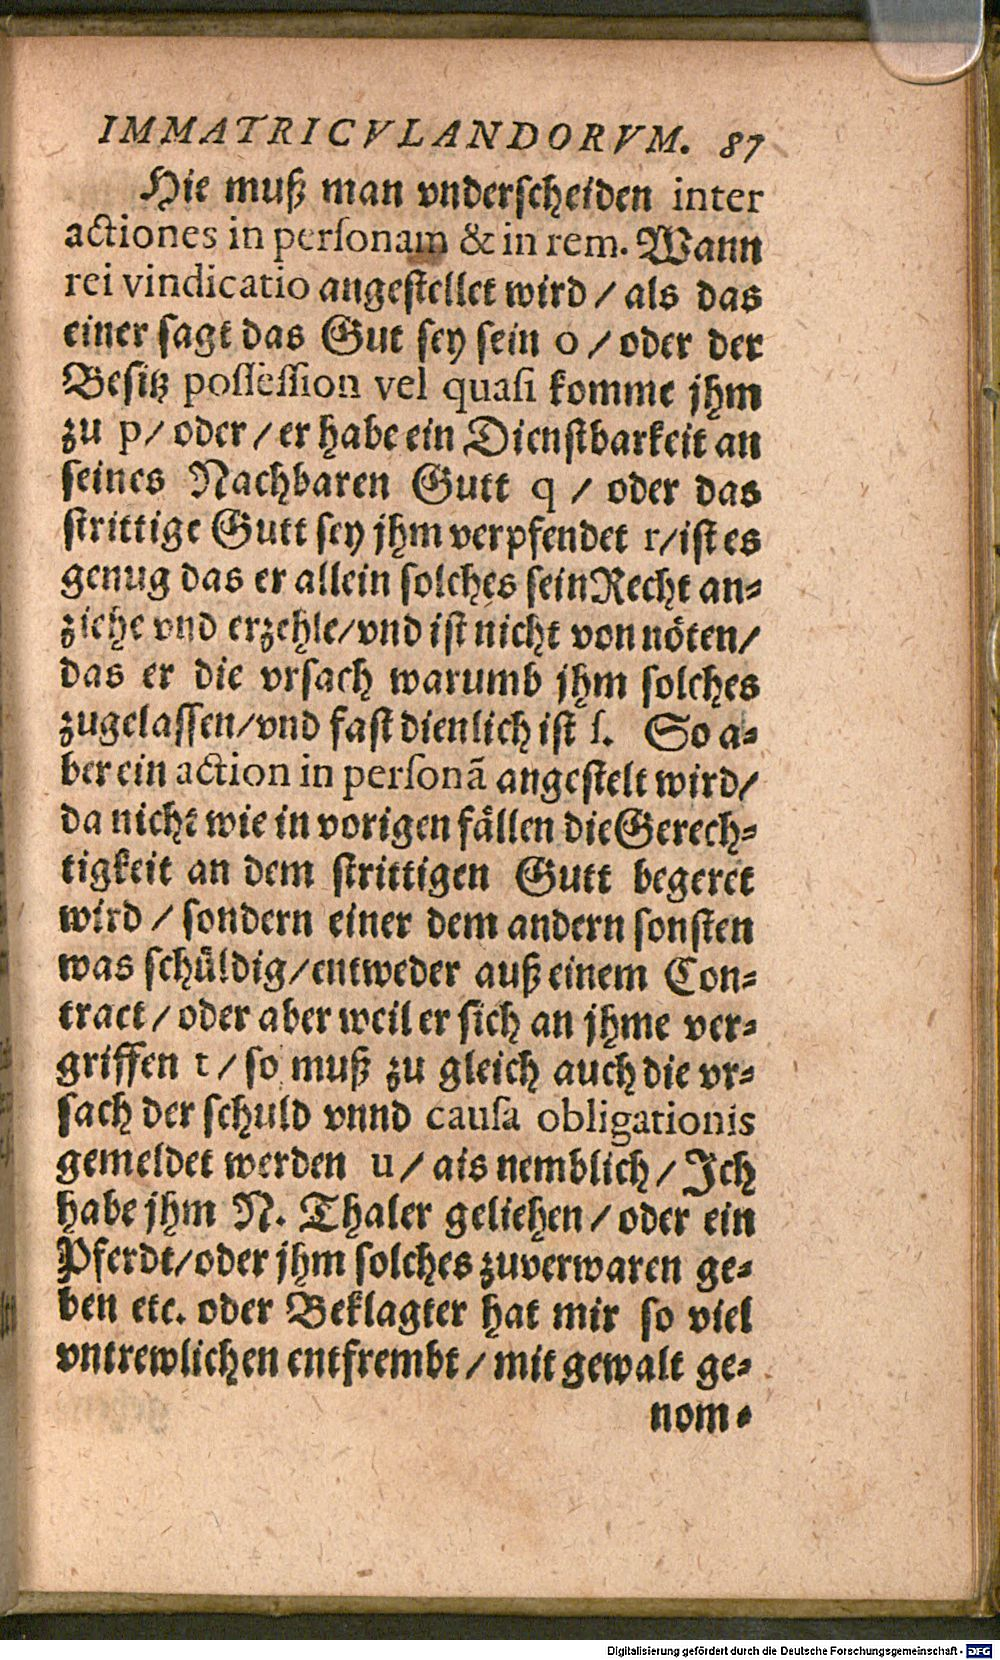 IMMATRICVLANDORVM. 87
Hie muß man vnderscheiden inter
actiones in perſonam & in rem. Wann
rei vindicatio angestellet wird / als das
einer sagt das Gut sey sein o / oder der
Besitz poſſeſſion vel quaſi komme jhm
zu p / oder / er habe ein Dienstbarkeit an
seines Nachbaren Gutt q / oder das
strittige Gutt sey jhm verpfendet r / ist es
genug das er allein solches sein Recht an-
ziehe vnd erzehle / vnd ist nicht von nöten /
das er die vrsach warumb jhm solches
zugelassen / vnd fast dienlich ist ſ. So a-
ber ein action in perſonã angestelt wird /
da nicht wie in vorigen fällen die Gerech-
tigkeit an dem strittigen Gutt begeret
wird / sondern einer dem andern sonsten
was schüldig / entweder auß einem Con-
tract / oder aber weil er sich an jhme ver-
griffen t / so muß zu gleich auch die vr-
sach der schuld vnnd cauſa obligationis
gemeldet werden u / als nemblich / Ich
habe jhm N. Thaler geliehen / oder ein
Pferdt / oder jhm solches zuverwaren ge-
ben etc. oder Beklagter hat mir so viel
vntrewlichen entfrembt / mit gewalt ge-
nom-
Digitalisierung gefördert durch die Deutsche Forschungsgemeinschaft - DFG